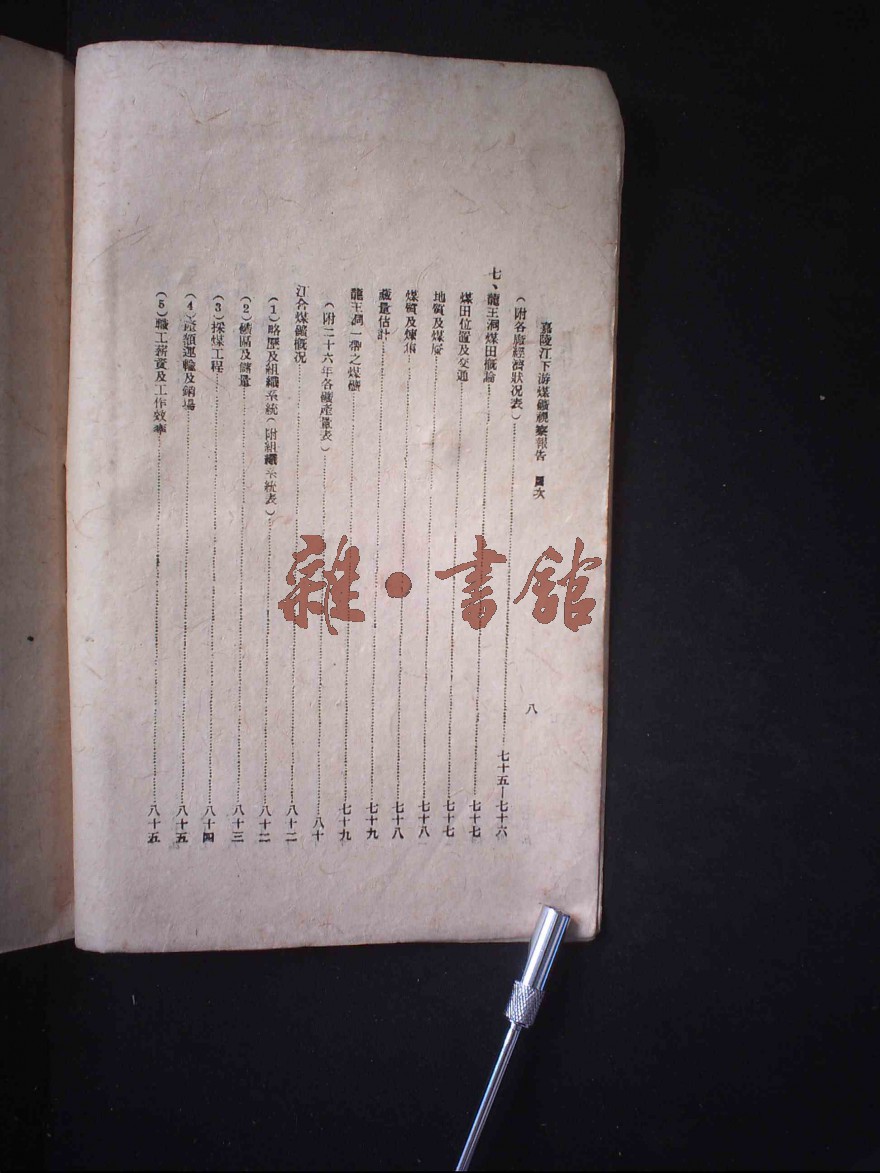 嘉陵江下游煤礦視察報告　目次
八
（附各廠經濟狀況表）……七十五—七十六
七、龍王洞煤田概論……七十七
煤田位置及交通……七十七
地質及煤層……七十八
煤質及煉焦……七十八
藏量估計……七十九
龍王洞一帶之煤礦……七十九
（附二十六年各礦產量表）……八十
江合煤礦概況……八十二
（1）略歷及組織系統（附組織系統表）……八十二
（2）礦區及儲量……八十三
（3）採煤工程……八十四
（4）產額運輸及銷場……八十五
（5）職工薪資及工作效率……八十五
雜·書館